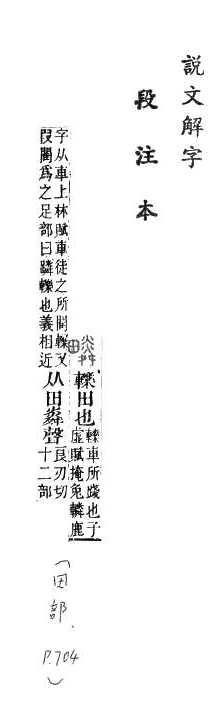 説文解字
段注本
疄轢田也
轢車所踐也子
虛賦掩兔轔鹿
字从車上林賦車徒之所閵轢又
叚閵爲之足部曰蹸轢也義相近
从田粦聲
良刃切
十二部
(田部. P.704)